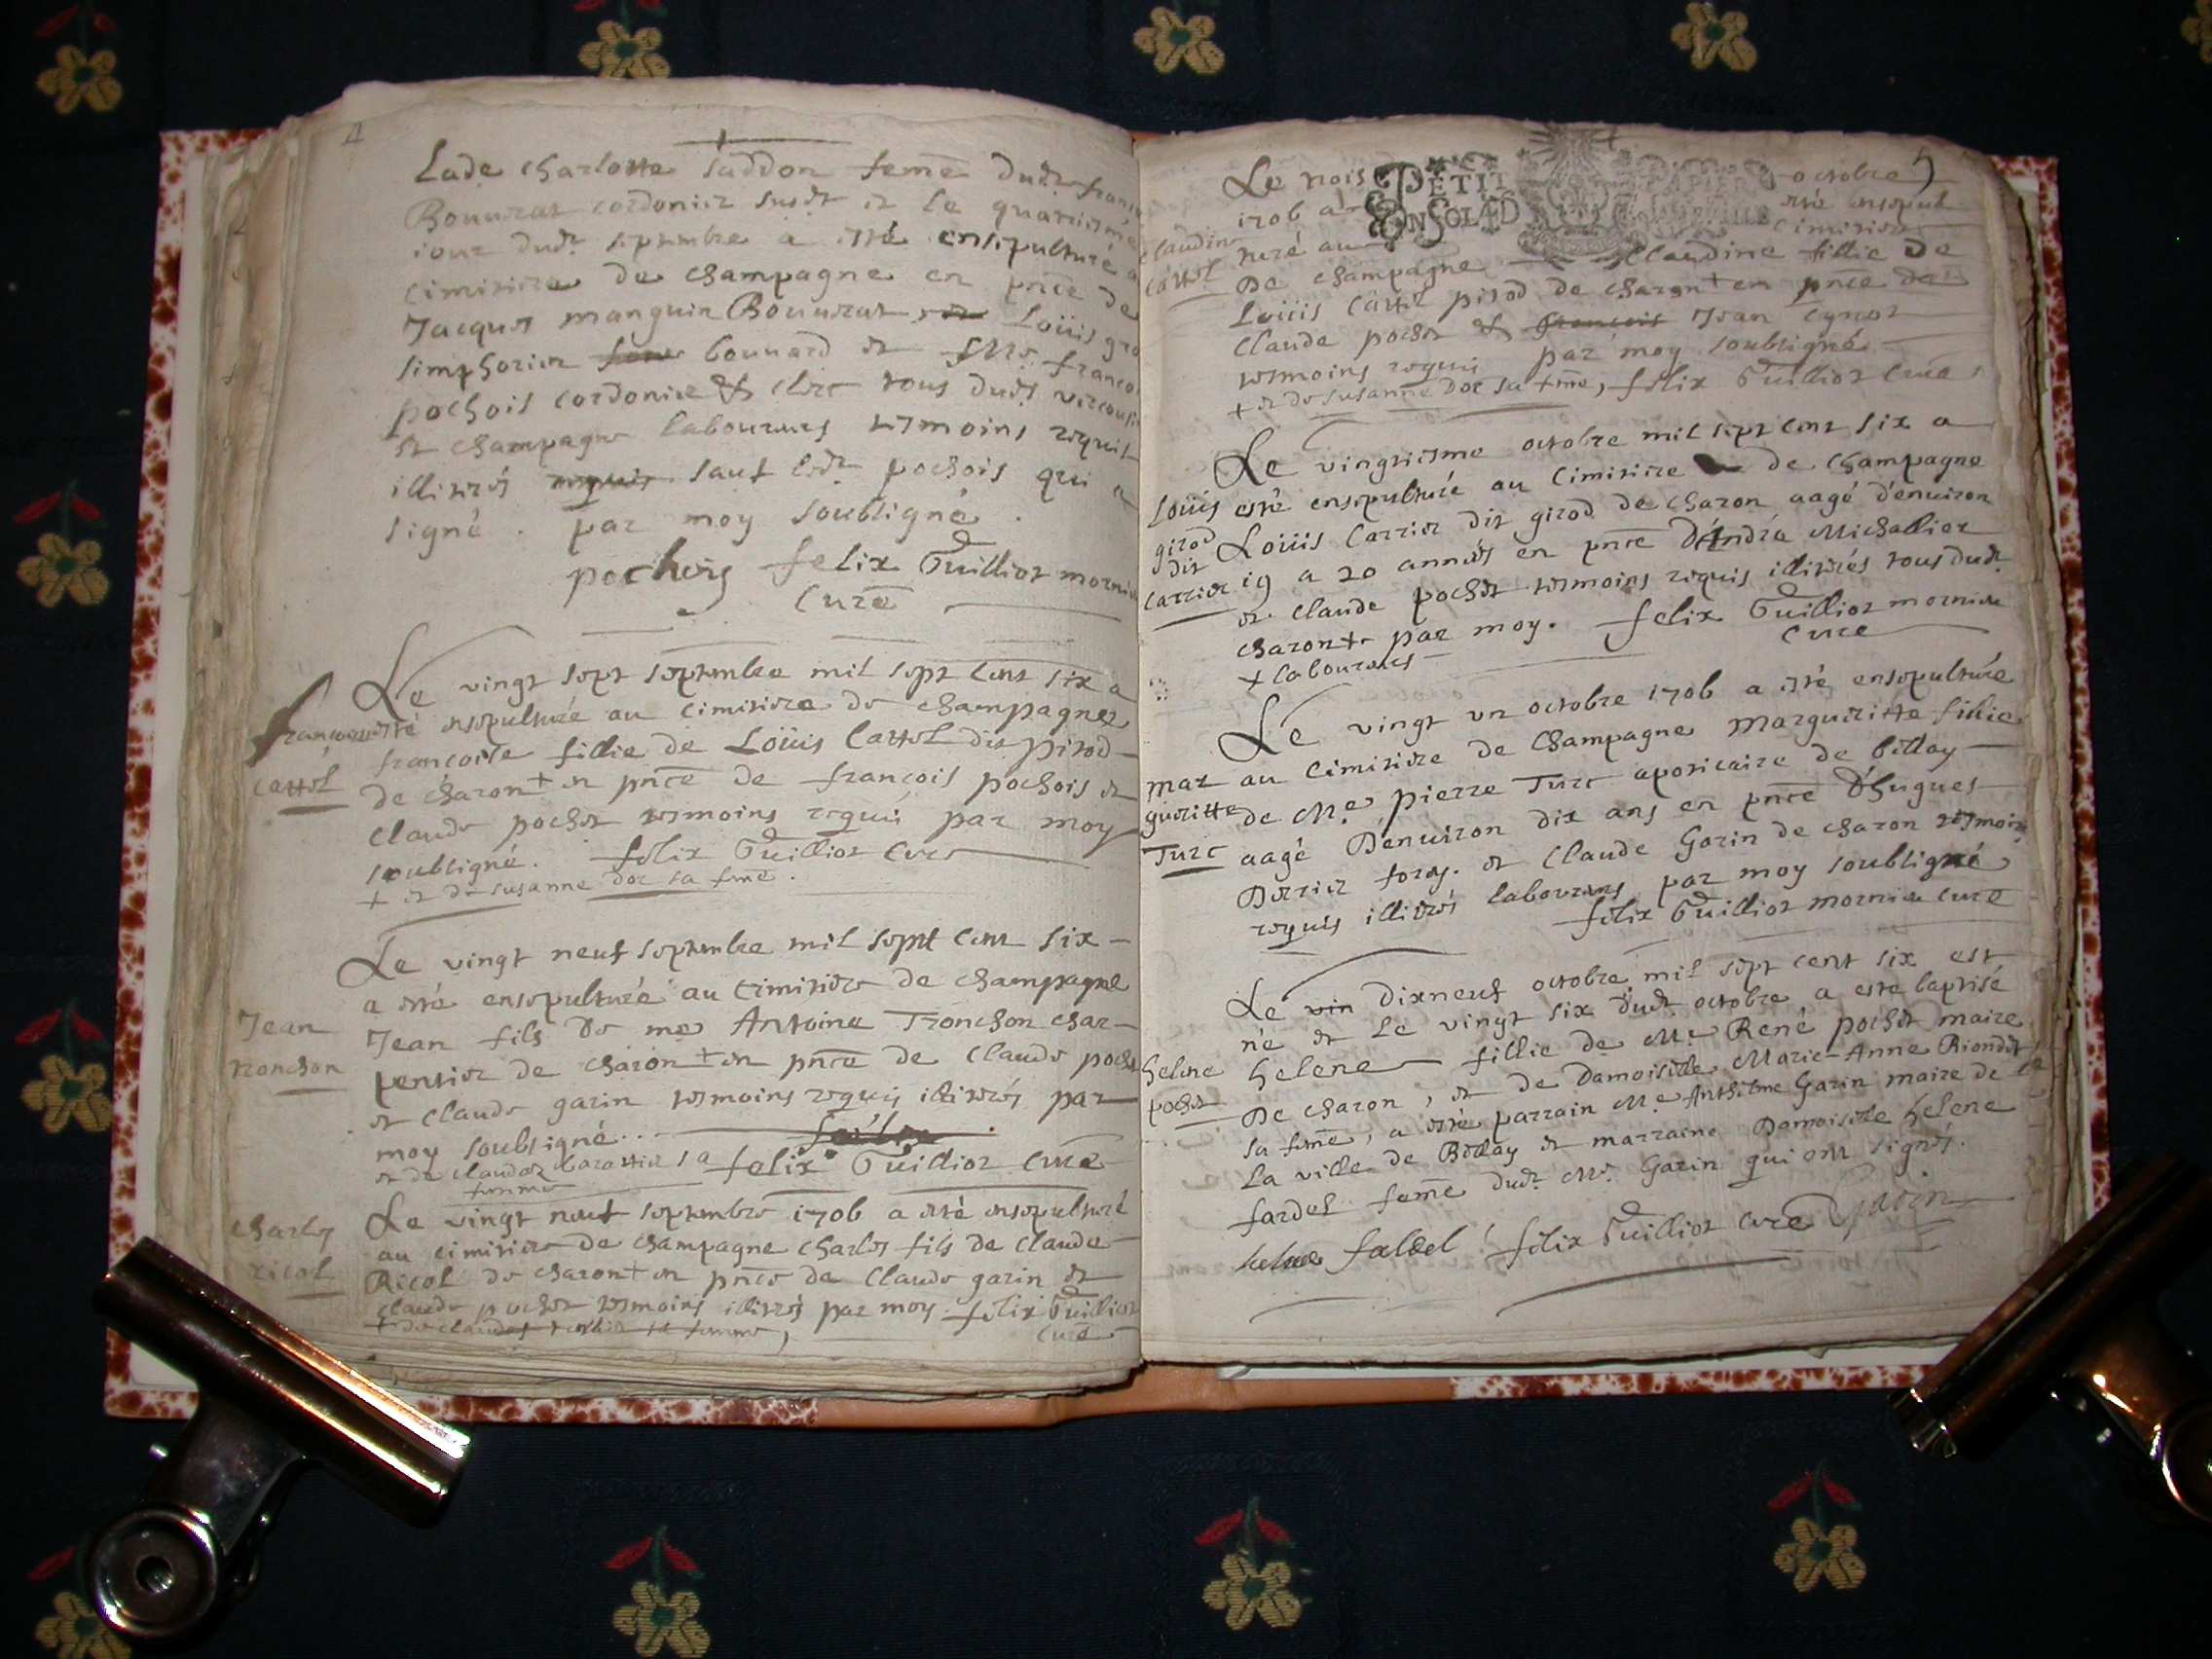 4
Lade Charlotte Saddon feme dudt franc
Bouurat cordonier susdt et le quatriesme
iour dudt septembre a esté ensepulturé a
cimitiere de Champagne en pnce de
Jacques manguin Bouurat Loüis gro
simphorien bouuard et franco
pochois cordonier & clerc tous dudt
et Champagne laboureurs tesmoins requis
illiterés requis sauf ledt pochois qui a
signé. par moy soubsigné.
pochois felix Guilliot mornieu
Curé
Le vingt sept septembre mil sept cent six a
francoise esté ensepulturée au cimitiere de Champagne
francoise fillie de Loüis Cattol dit pirod
Cattol de Charon + en pnce de françois pochois et
Claude pochet tesmoins requis par moy
soubsigné. felix Guilliot Curé
+ et de susanne doc sa fme.
Le vingt neuf septembre mil sept cent six
a esté ensepulturée au cimitiere de Champagne
Jean Jean fils de me Antoine Tronchon char-
tronchon pentier de Charon + en pnce de Claude poche
et Claude garin tesmoins requis illiterés par
moy soubsigné.
et de Claudaz sa felix Guilliot Curé
femme
Charles Le vingt neuf septembre 1706 a esté ensepulturé
au cimitiere de Champagne Charles fils de Claude
ricol Ricol de Charon + en pnce de Claude garin et
Claude pochet tesmoins illiterés par moy felix Guilliot
+ de Claudaz sa femme, Curé
5
Le trois PETIT PAPIER octobre
1706 a EN SOL 2D esté ensepul
Claudine turé au cimitiere
Cattol De Champagne Claudine fillie de
Loüis Cattol pirod de Charon + en pnce de
Claude pochet & francois Jean Cynot
tesmoins requis par moy soubsigné
+ et de susanne doc sa fme, felix Guilliot Curé
Le vingtiesme octobre mil sept cent six a
Loüis esté ensepulturé au Cimitiere de Champagne
girod Loüis Carrier dit girod de Charon aagé d'enuiron
dit
Carrier 19 a 20 années en pnce D'André Michallier
et Claude pochet tesmoins requis illiterés tous dudt
Charon + par moy. felix Guilliot mornieu
+ laboureurs curé
Le vingt un octobre 1706 a esté ensepulturée
mar au Cimitiere de Champagne Margueritte fillie
gueritte de Me pierre Turc apoticaire de billay
Turc aagé D'enuiron dix ans en pnce D'hugues
Derrier foray. et Claude Garin de Charon tesmoins
requis illiterés laboureurs par moy soubsigné
felix Guilliot mornieu curé
Le vin Dixneuf octobre mil sept cent six est
né et Le vingt six dudt octobre a esté baptisé
helene helene fillie de Me René pochet maire
pochet De Charon, et de Damoiselle Marie-Anne Riondet
sa feme, a esté parrain Me Anthelme Garin maire de
La ville de Billay et marraine Damoiselle helene
fardel feme dudt Mr. Garin qui ont signés.
helene fardel felix Guilliot curé Garin